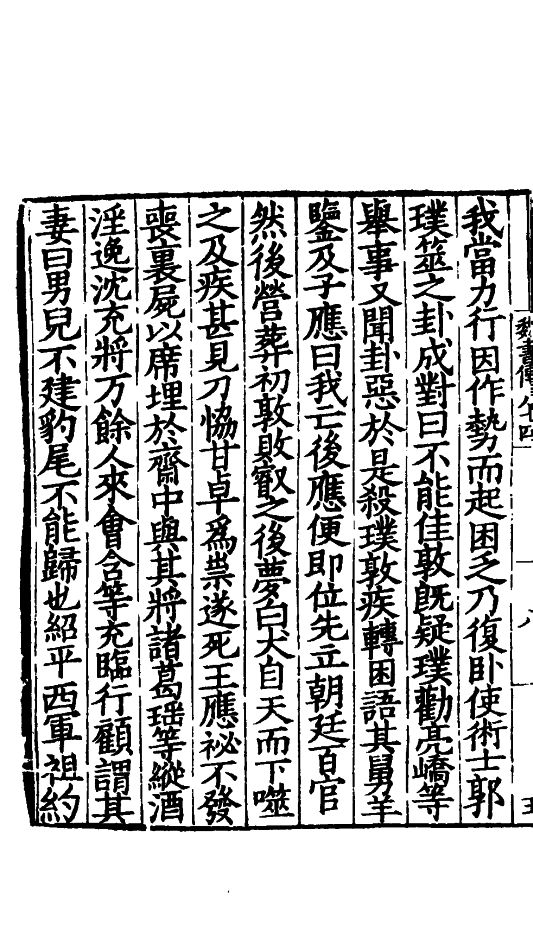 魏書傳八十四
八
我當力行因作勢而起困乏乃復卧使術士郭
璞筮之卦成對曰不能佳敦旣疑璞勸亮嶠等
舉事又聞卦惡於是殺璞敦疾轉困語其舅羊
鑒及子應曰我亡後應便即位先立朝廷百官
然後營葬初敦敗叡之後夢白犬自天而下噬
之及疾甚見刀協甘卓爲祟遂死王應祕不發
喪裹屍以席埋於齋中與其將諸葛瑶等縱酒
淫逸沈充將万餘人來會含等充臨行顧謂其
妻曰男兒不建豹尾不能歸也紹平西軍祖約